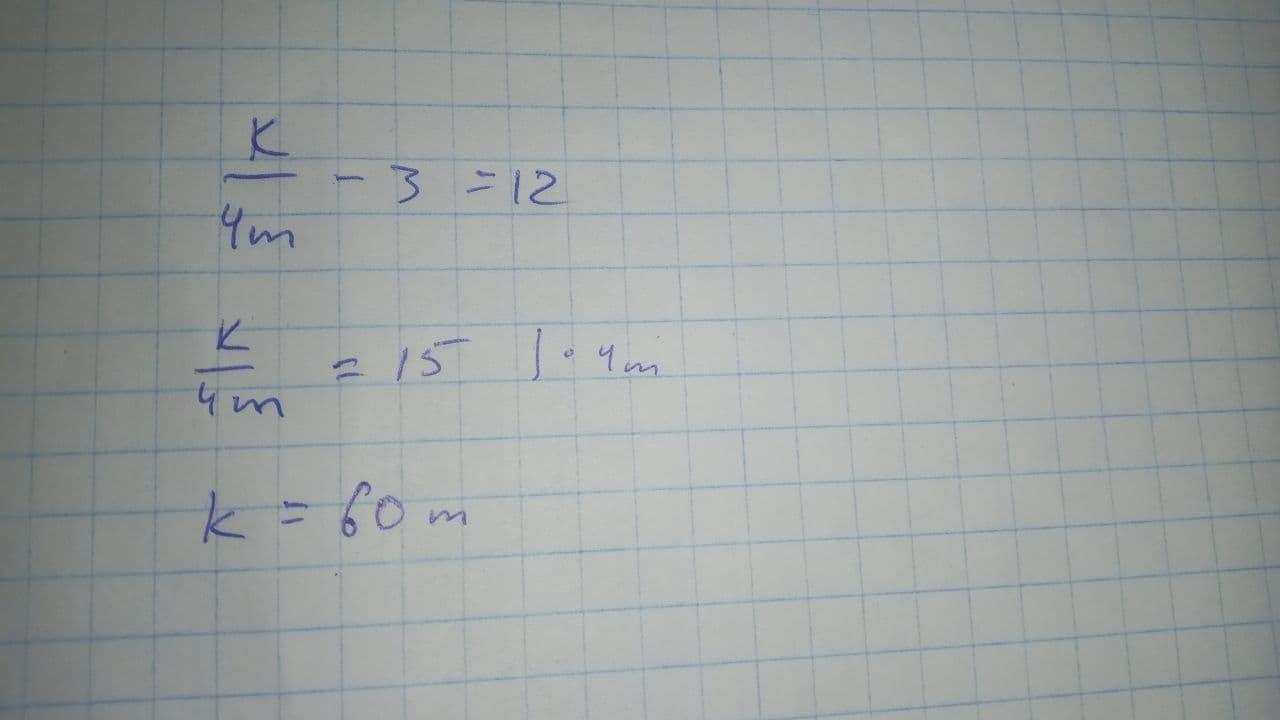 K/4m - 3 = 12
K/4m = 15 | · 4m
k = 60 m